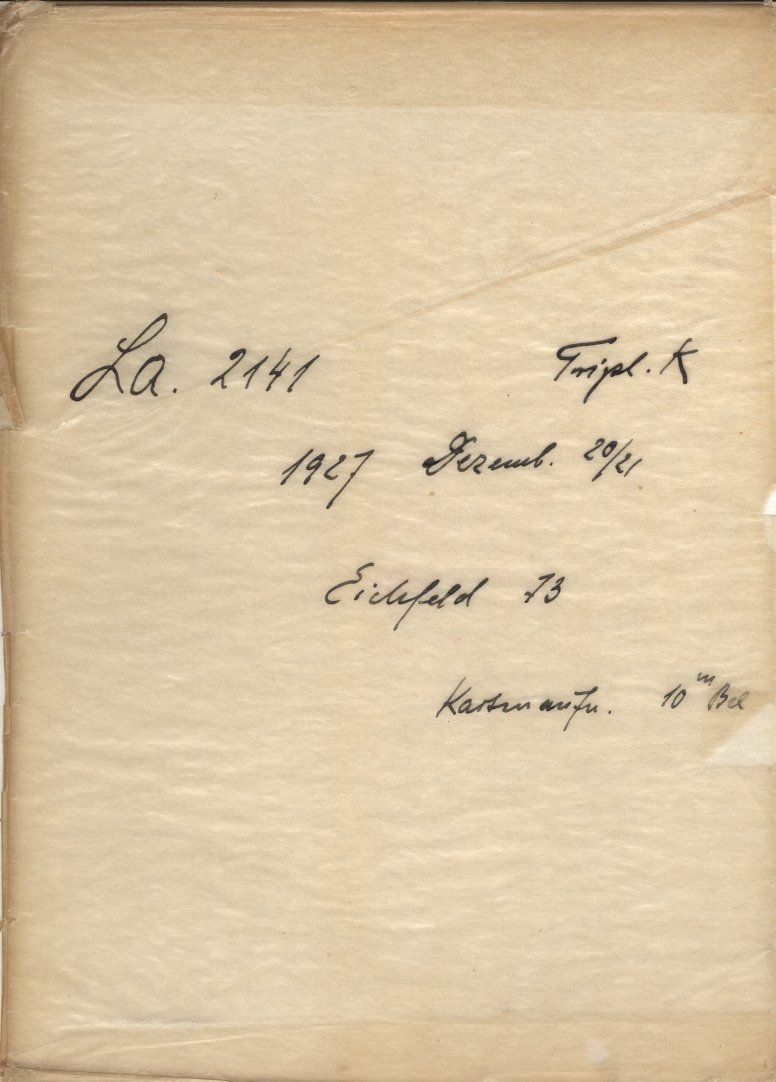 La. 2141 Tripl. K
1927 Dezemb. 20/21
Eichfeld 73
Kartenaufn. 10ᵐ Bel